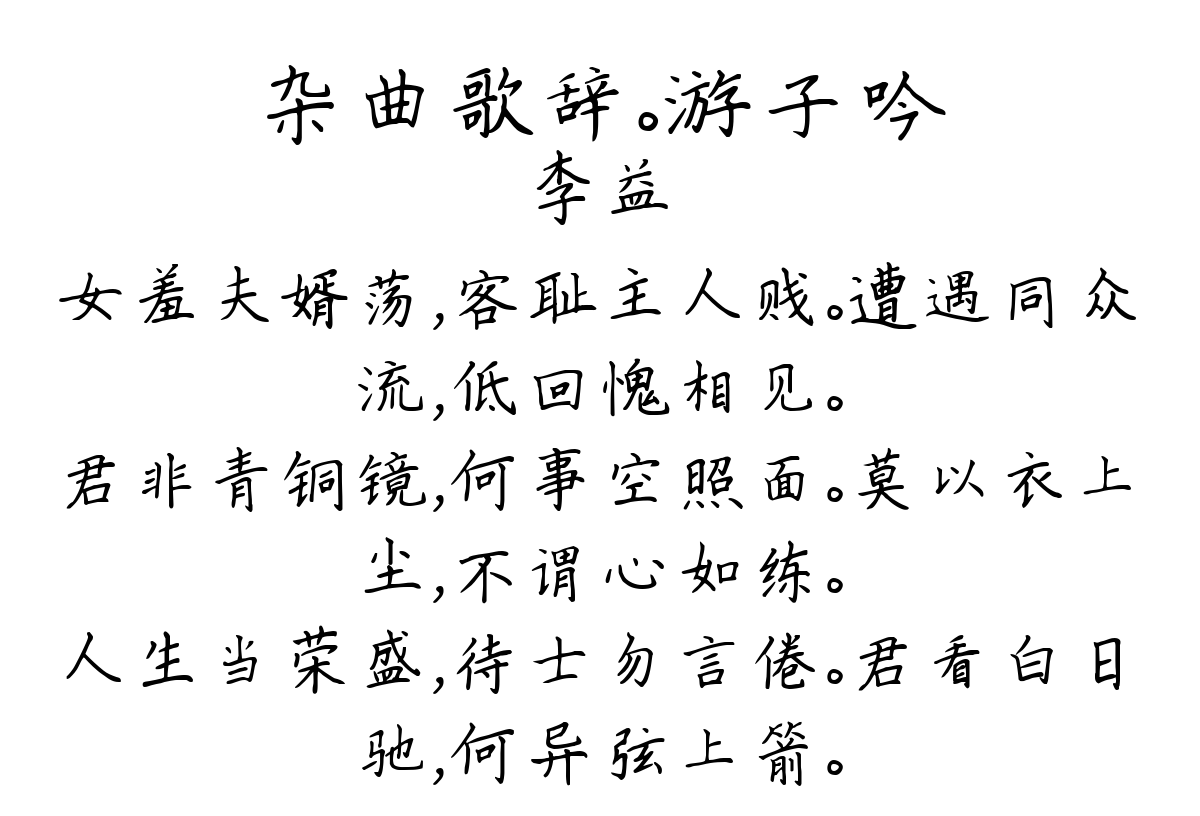 杂曲歌辞。游子吟
李益
女羞夫婿荡,客耻主人贱。遭遇同众
流,低回愧相见。
君非青铜镜,何事空照面。莫以衣上
尘,不谓心如练。
人生当荣盛,待士勿言倦。君看白日
驰,何异弦上箭。